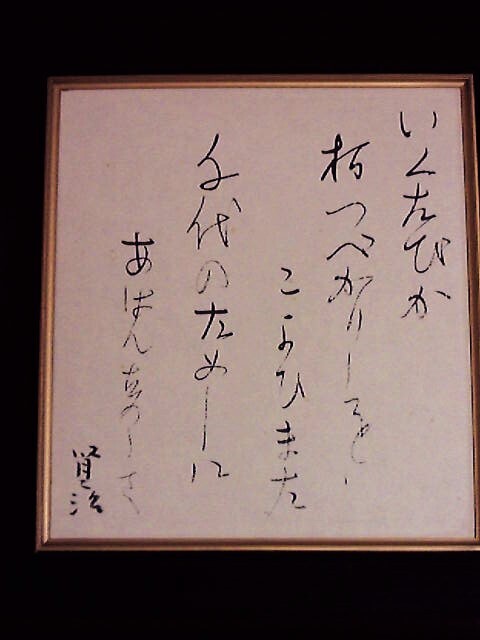 いくたびか
朽つべかりしを
こよひまた
千代のためしに
あはんたのしさ
賢治